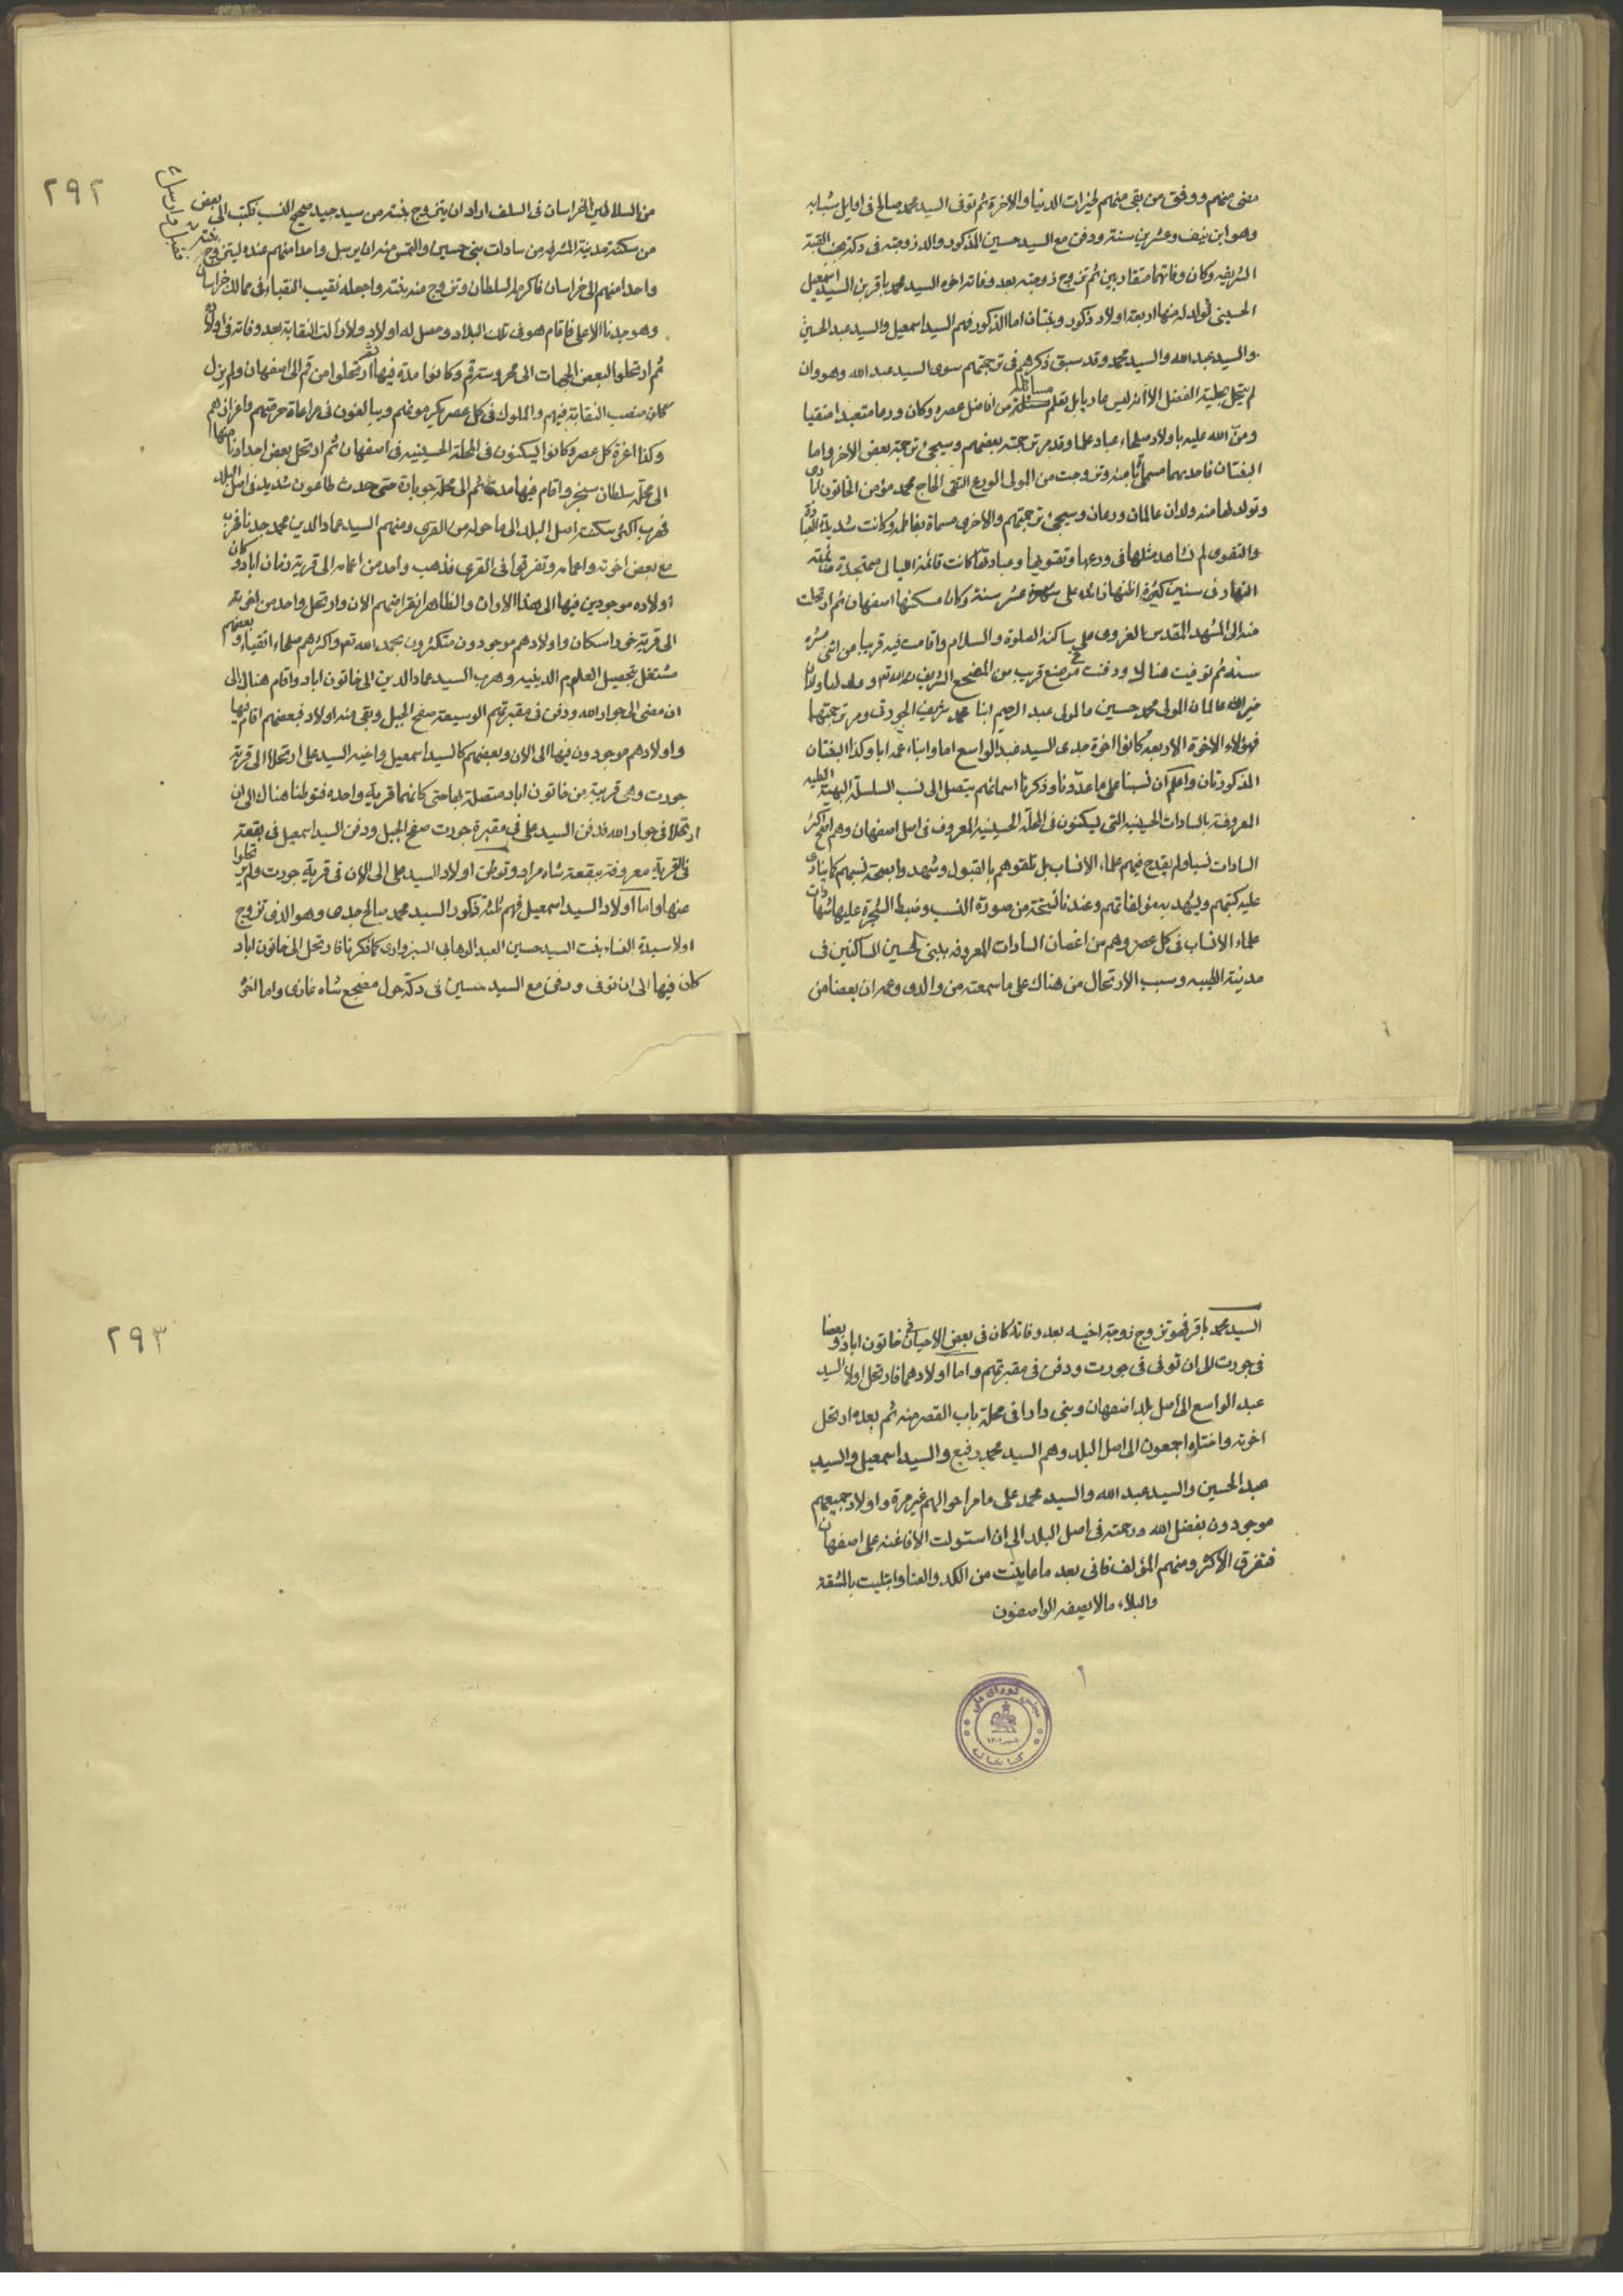 مضى منهم ووفق من بقى منهم لخيرات الدنيا والاخرة ثم توفى السيد محمد صالح فى اوايل شبابه
وهو ابن نيف وعشرين سنة ودفن مع السيد حسين المذكور والد زوجته فى دكة القبة
الشريفه وكان وفاتهما متقاربين ثم تزوج زوجته بعد وفاته اخوه السيد محمد باقر بن السيد اسمعيل
الحسينى تولد له منها اربعة اولاد ذكور وبنتان اما الذكور فهم السيد اسمعيل والسيد عبد الحسين
والسيد عبد الله والسيد محمد وقد سبق ذكرهم فى ترجمتهم سوى السيد عبد الله وهو وان
لم يتحل بحلية الفضل الا انه ليس عاريا بل تعلم مسائله من افاضل عصره وكان ورعا متعبدا متقيا
ومن الله عليه باولاد صلحاء عباد علما وقد مر ترجمة بعضهم وسيجئ ترجمة بعض الاخر واما
البنتان فاحديهما مسماة وتزوجت من المولى الورع التقى الحاج محمد مؤمن الخاتون ابادى
وتولد لها منه ولدان عالمان ورعان وسيجئ ترجمتهم والاخرى مسماة بفاطمه وكانت شديدة العبادة
والتقوى لم نشاهد مثلها فى ورعها وتقويها وعبادتها كانت قائمة الليالى متهجدة صائمة
النهار فى سنين كثيرة اظنها زائدة على عشر سنة وكان مسكنها اصفهان ثم ارتحلت
منه الى المشهد المقدس الغروى على ساكنه الصلوة والسلام واقامت فيه قريبا من اثنى عشره
سنة ثم توفيت هناك ودفنت فى موضع قريب من المضجع الشريف ولها ولدان
خيران عالمان المولى محمد حسين والمولى عبد الرحيم ابنا محمد شريف الجورتى ومر ترجمتهما
فهؤلاء الاخوة الاربعه كانوا اخوة جدى السيد عبد الواسع اما وابناء عمه ابا وكذا البنتان
المذكورتان واعلم ان نسبنا على ما عددنا وذكرنا اسمائهم يتصل الى نسب السلسلة البهية العليه
المعروفة بالسادات الحسينيه التى يسكنون فى المحلة الحسينيه المعروف فى اصل اصفهان وهم اصح اكثر
السادات نسبا ولم يقدح فيهم علماء الانساب بل تلقوهم بالقبول وشهدوا بصحة نسبهم كما ينادى
عليه كتبهم ويشهد به مؤلفاتهم وعندنا نسخة من صورة النسب وضبط الشجرة عليها شهادات
علماء الانساب فى كل عصر وهم من اغصان السادات المعروفه ببنى الحسين الساكنين فى
مدينة الطيبه وسبب الارتحال من هناك على ما سمعته من والدى وعمه ان بعضا من
۲۹۲
من السلاطين الخراسان فى السلف اراد ان يتزوج بنته من سيد جيد صحيح النسب فكتب الى بعض
من سكنة مدينة المشرفه من سادات بنى حسين والتمس منه ان يرسل واحدا منهم عنده ليتزوج بنته
فقبل وارسل
واحدا منهم الى خراسان فاكرمه السلطان وتزوج منه بنته واجعله نقيب النقباء فى ممالك خراسان
وهو جدنا الاعلى فاقام هو فى تلك البلاد وحصل له اولاد ولازالت النقابة بعد وفاته فى اولاده
ثم ارتحلوا لبعض الجهات الى محروسة قم وكانوا مدة فيها ثم ارتحلوا من قم الى اصفهان ولم يزل
كان منصب النقابة فيهم والملوك فى كل عصر يكرمونهم ويبالغون فى مراعاة حرمتهم واعزازهم
وكذا اعزة كل عصر وكانوا يسكنون فى المحلة الحسينيه فى اصفهان ثم ارتحل بعض اجدادنا منها
الى محلة سلطان سنجر واقام فيها مدة ثم الى محلة جوبارة حتى حدث طاعون شديد فى اصل البلد
فهرب اكثر سكنة اصل البلد الى ما حوله من القرى ومنهم السيد عماد الدين محمد جدنا فهرب
مع بعض اخوته واعمامه وتفرقوا فى القرى فذهب واحد من اعمامه الى قرية زمان اباد وكان
اولاده موجودين فيها الى هذا الاوان والظاهر انقراضهم الان وارتحل واحد من اخوته
الى قرية خوراسكان واولادهم موجودون متكثرون بحمد الله تعم واكثرهم صلحاء اتقياء وبعضهم
مشتغل بتحصيل العلوم الدينيه وهرب السيد عماد الدين الى خاتون اباد واقام هناك الى
ان مضى الى جوار الله ودفن فى مقبرتهم الوسيعة صفح الجبل وبقى منه اولاد فبعضهم اقام فيها
واولادهم موجودون فيها الى الان وبعضهم كالسيد اسمعيل واخيه السيد على ارتحلا الى قرية
جورت وهى قريبة من خاتون اباد متصلة بها حتى كانهما قرية واحده فتوطنا هناك الى ان
ارتحلا فى جوار الله فدفن السيد على فى مقبرة جورت صفح الجبل ودفن السيد اسمعيل فى بقعة
فى القرية معروفة ببقعة شاه مراد وتوطن اولاد السيد على الى الان فى قرية جورت ولم يرتحلوا
عنها واما اولاد السيد اسمعيل فهم ثلثة ذكور السيد محمد صالح جدى وهو الذى تزوج
اولا سيدة النساء بنت السيد حسين العبد الوهابى السبزوارى كما ذكرنا فارتحل الى خاتون اباد
كان فيها الى ان توفى ودفن مع السيد حسين فى دكة حول مضجع شاه غازى واما اخوه
السيد محمد باقر فهو تزوج زوجة اخيه بعد وفاته كان فى بعض الاحيان فى خاتون اباد وبعضا
فى جورت الى ان توفى فى جورت ودفن فى مقبرتهم واما اولادهما فارتحل اولا السيد
عبد الواسع الى اصل بلد اصفهان وبنى دارا فى محلة باب القصر منه ثم بعده ارتحل
اخوته واختاه اجمعون الى اصل البلد وهم السيد محمد رفيع والسيد اسمعيل والسيد
عبد الحسين والسيد عبد الله والسيد محمد على ما مر احوالهم غير مرة واولاد جميعهم
موجودون بفضل الله ورحمته فى اصل البلد الى ان استولت الافاغنه على اصفهان
فتفرق الاكثر ومنهم المؤلف فانى بعد ما عاينت من الكد والعنا وابتليت بالمشقة
والبلاء ما لا يصفه الواصفون
مجلس شورای ملی
کتابخانه
۲۹۳